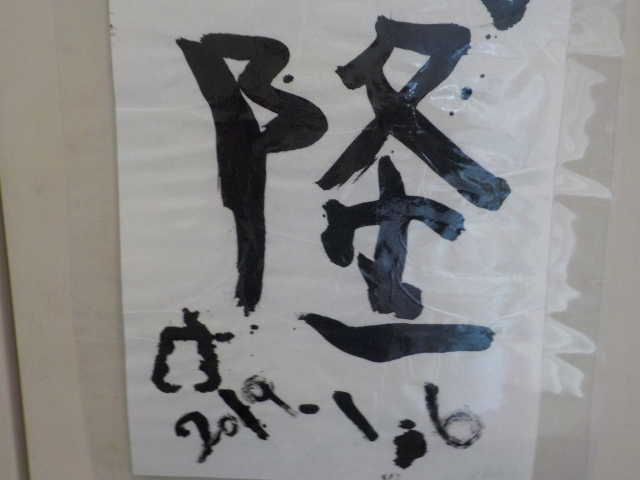 隆
2019.1.6